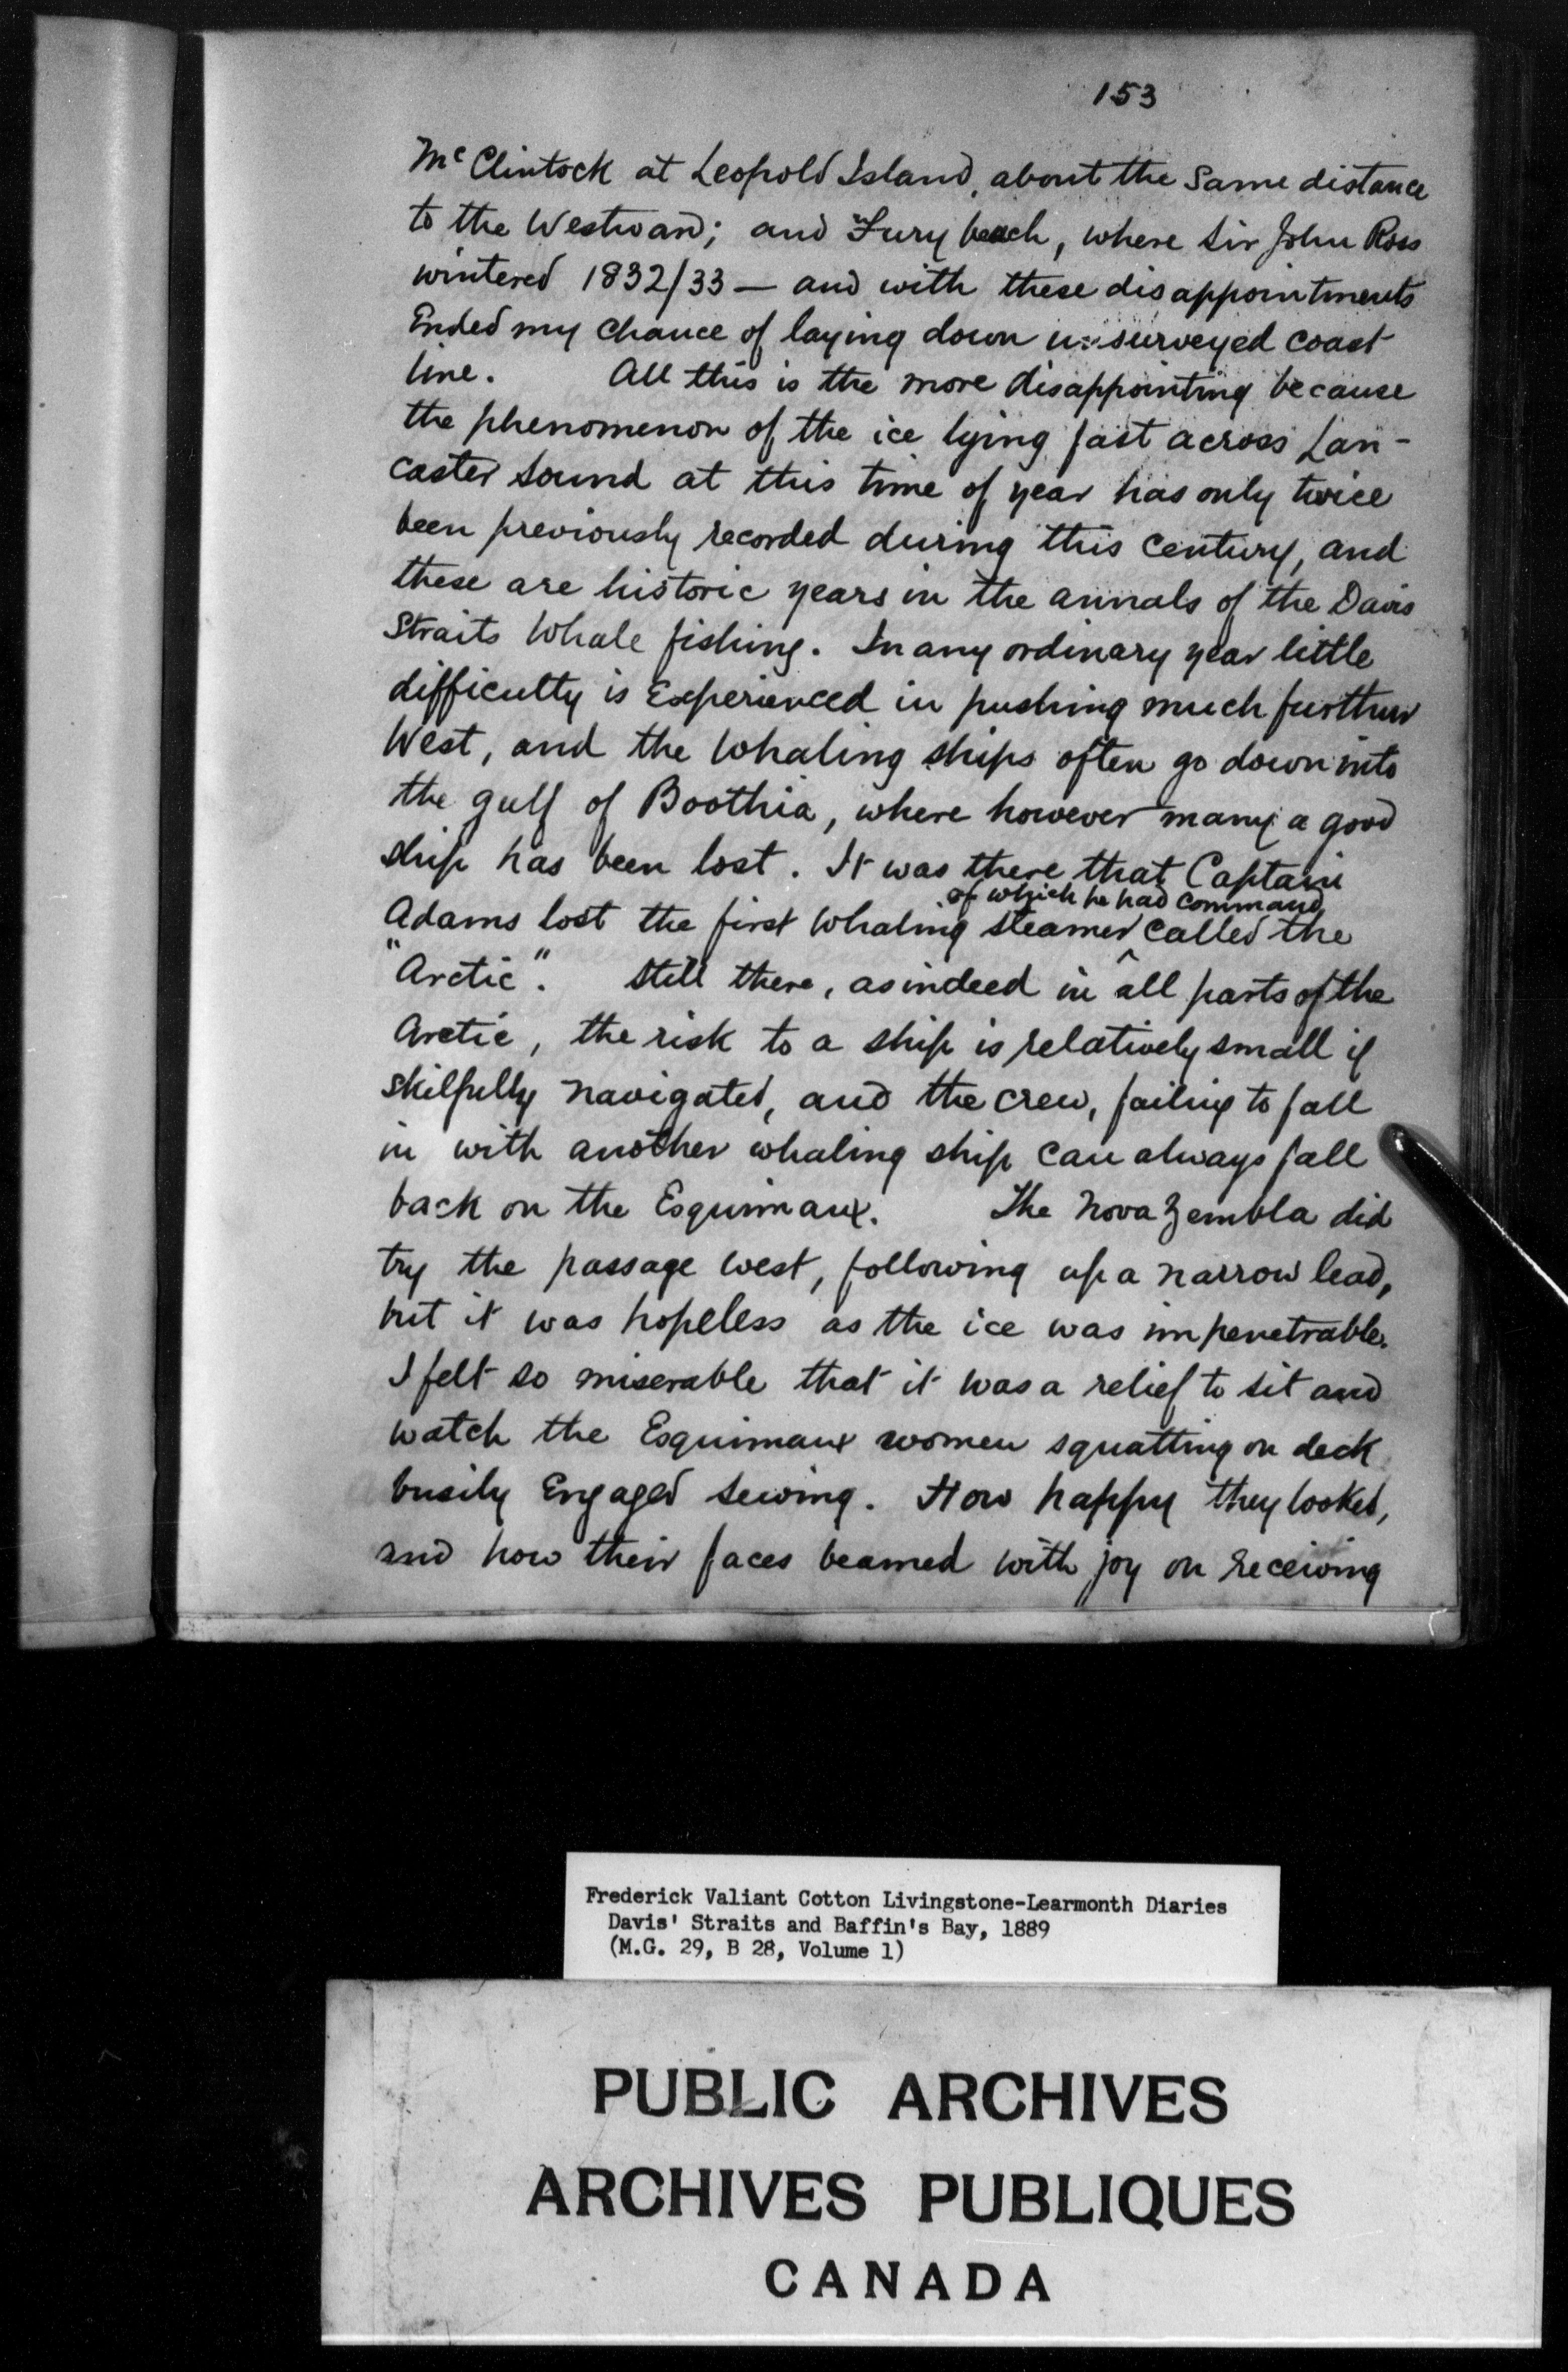 153
McClintock at Leopold Island, about the same distance
to the Westward; and Fury beach, where Sir John Ross
wintered 1832/33 — and with these disappointments
Ended my chance of laying down unsurveyed coast
line. All this is the more disappointing because
the phenomenon of the ice lying fast across Lan-
caster Sound at this time of year has only twice
been previously recorded during this century, and
these are historic years in the annals of the Davis
Straits Whale fishing. In any ordinary year little
difficulty is Experienced in pushing much further
West, and the Whaling ships often go down into
the gulf of Boothia, where however many a good
ship has been lost. It was there that Captain
of which he had command
Adams lost the first Whaling steamer ^ called the
"Arctic". Still there, as indeed in all parts of the
Arctic, the risk to a ship is relatively small if
skilfully navigated, and the crew, failing to fall
in with another whaling ship can always fall
back on the Esquimaux. The Nova Zembla did
try the passage west, following up a narrow lead,
but it was hopeless as the ice was impenetrable.
I felt so miserable that it was a relief to sit and
watch the Esquimaux women squatting on deck
busily Engaged sewing. How happy they looked,
and how their faces beamed with joy on receiving
Frederick Valiant Cotton Livingstone-Learmonth Diaries
Davis' Straits and Baffin's Bay, 1889
(M.G. 29, B 28, Volume 1)
PUBLIC ARCHIVES
ARCHIVES PUBLIQUES
CANADA